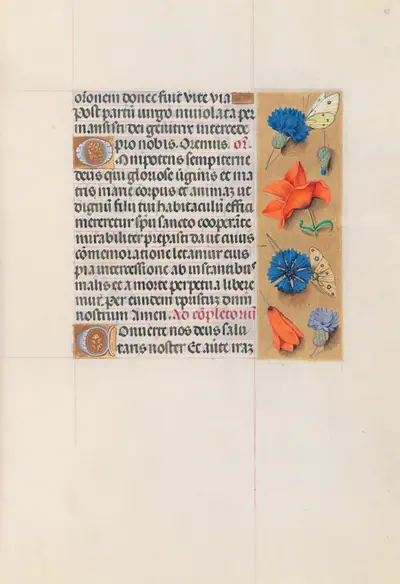 osonem donec fuit vite via
Post partū virgo inviolata per
mansisti dei genitrix intercede
pro nobis. Oremus. or̄.
Omnipotens sempiterne
deus qui gloriose v̄ginis et ma
tris marie corpus et animaz ut
dignū filii tui habitaculū effici
mereretur sp̄u sancto cooperāte
mirabiliter preparasti da ut cuius
comemoratione letamur eius
pia intercessione ab instantibus
malis et a morte perpetua libere
mur. Per eundem xp̄ustuz dn̄m
nostrum Amen. Ad cōpletoriū
Converte nos deus salu
taris noster Et av̄te iraz